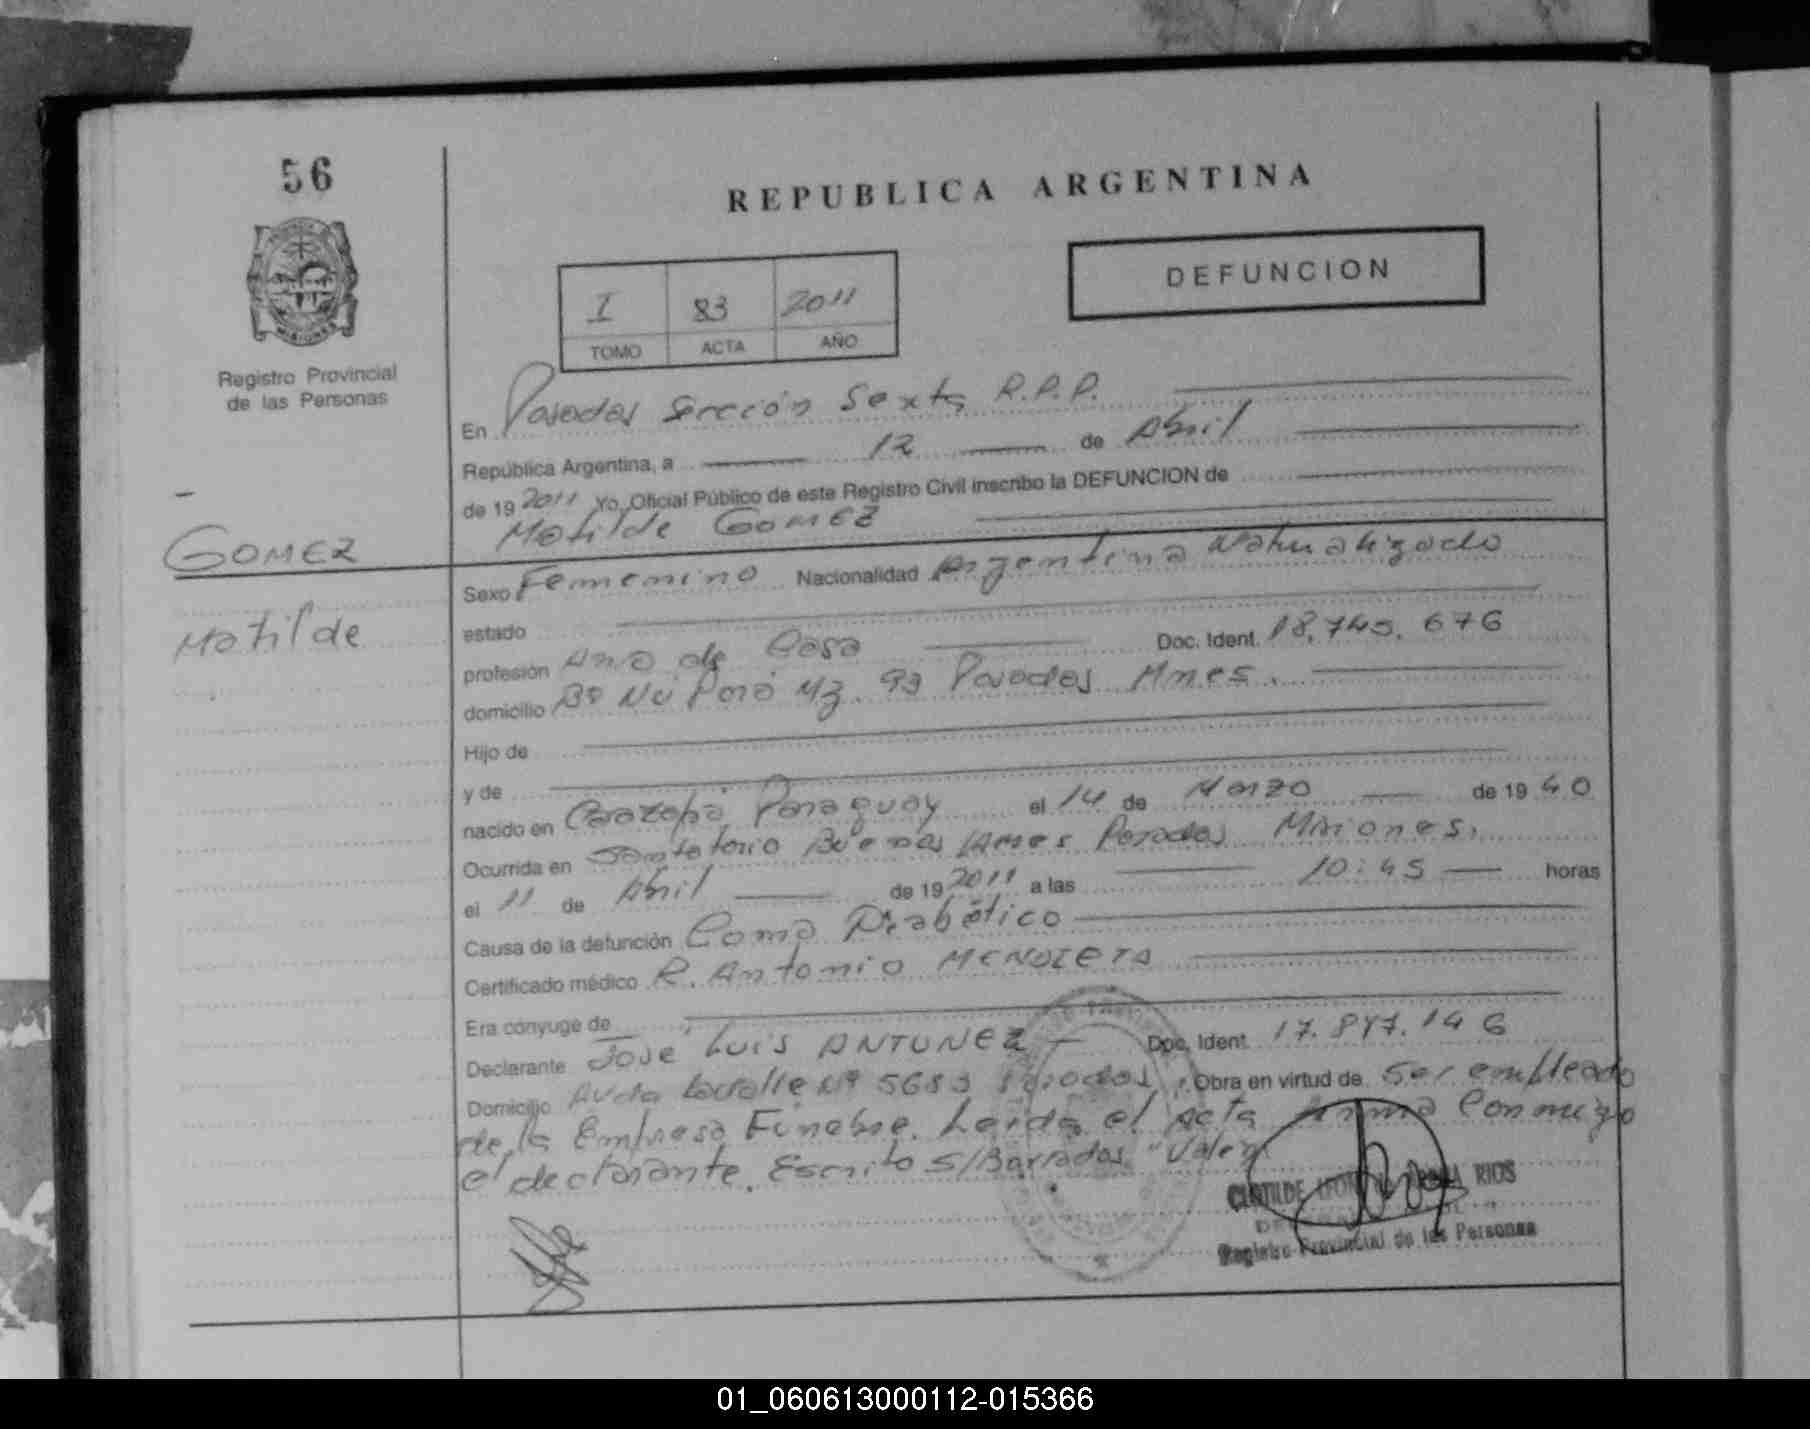 56
REPUBLICA ARGENTINA
DEFUNCION
I 83 2011
TOMO ACTA AÑO
MISIONES
Registro Provincial
de las Personas
En Posadas Sección Sexta R.P.P.
República Argentina, a 12 de Abril
de 19 2011 Yo, Oficial Público de este Registro Civil inscribo la DEFUNCION de
Matilde GOMEZ
GOMEZ
Matilde
Sexo Femenino Nacionalidad Argentina Naturalizada
estado
profesión Ama de Casa Doc. Ident. 18.745.676
domicilio Bº Ñu Porá Mz. 93 Posadas Mnes.
Hijo de
y de
nacido en Caazapá Paraguay el 14 de Marzo de 19 40
Ocurrida en Sanatorio Buenos Aires Posadas Misiones.
el 11 de Abril de 19 2011 a las 10:45 horas
Causa de la defunción Coma Diabético
Certificado médico R. Antonio MENDIETA
Era cónyuge de
Declarante José Luis ANTUNEZ Doc. Ident. 17.847.146
Domicilio Avda Lavalle Nº 5683 Posadas. Obra en virtud de Ser empleado
de la Empresa Fúnebre. Leída el Acta firma conmigo
el declarante. Escrito S/Borrados "Valen
CLOTILDE RIOS
Registro Provincial de las Personas
01_060613000112-015366